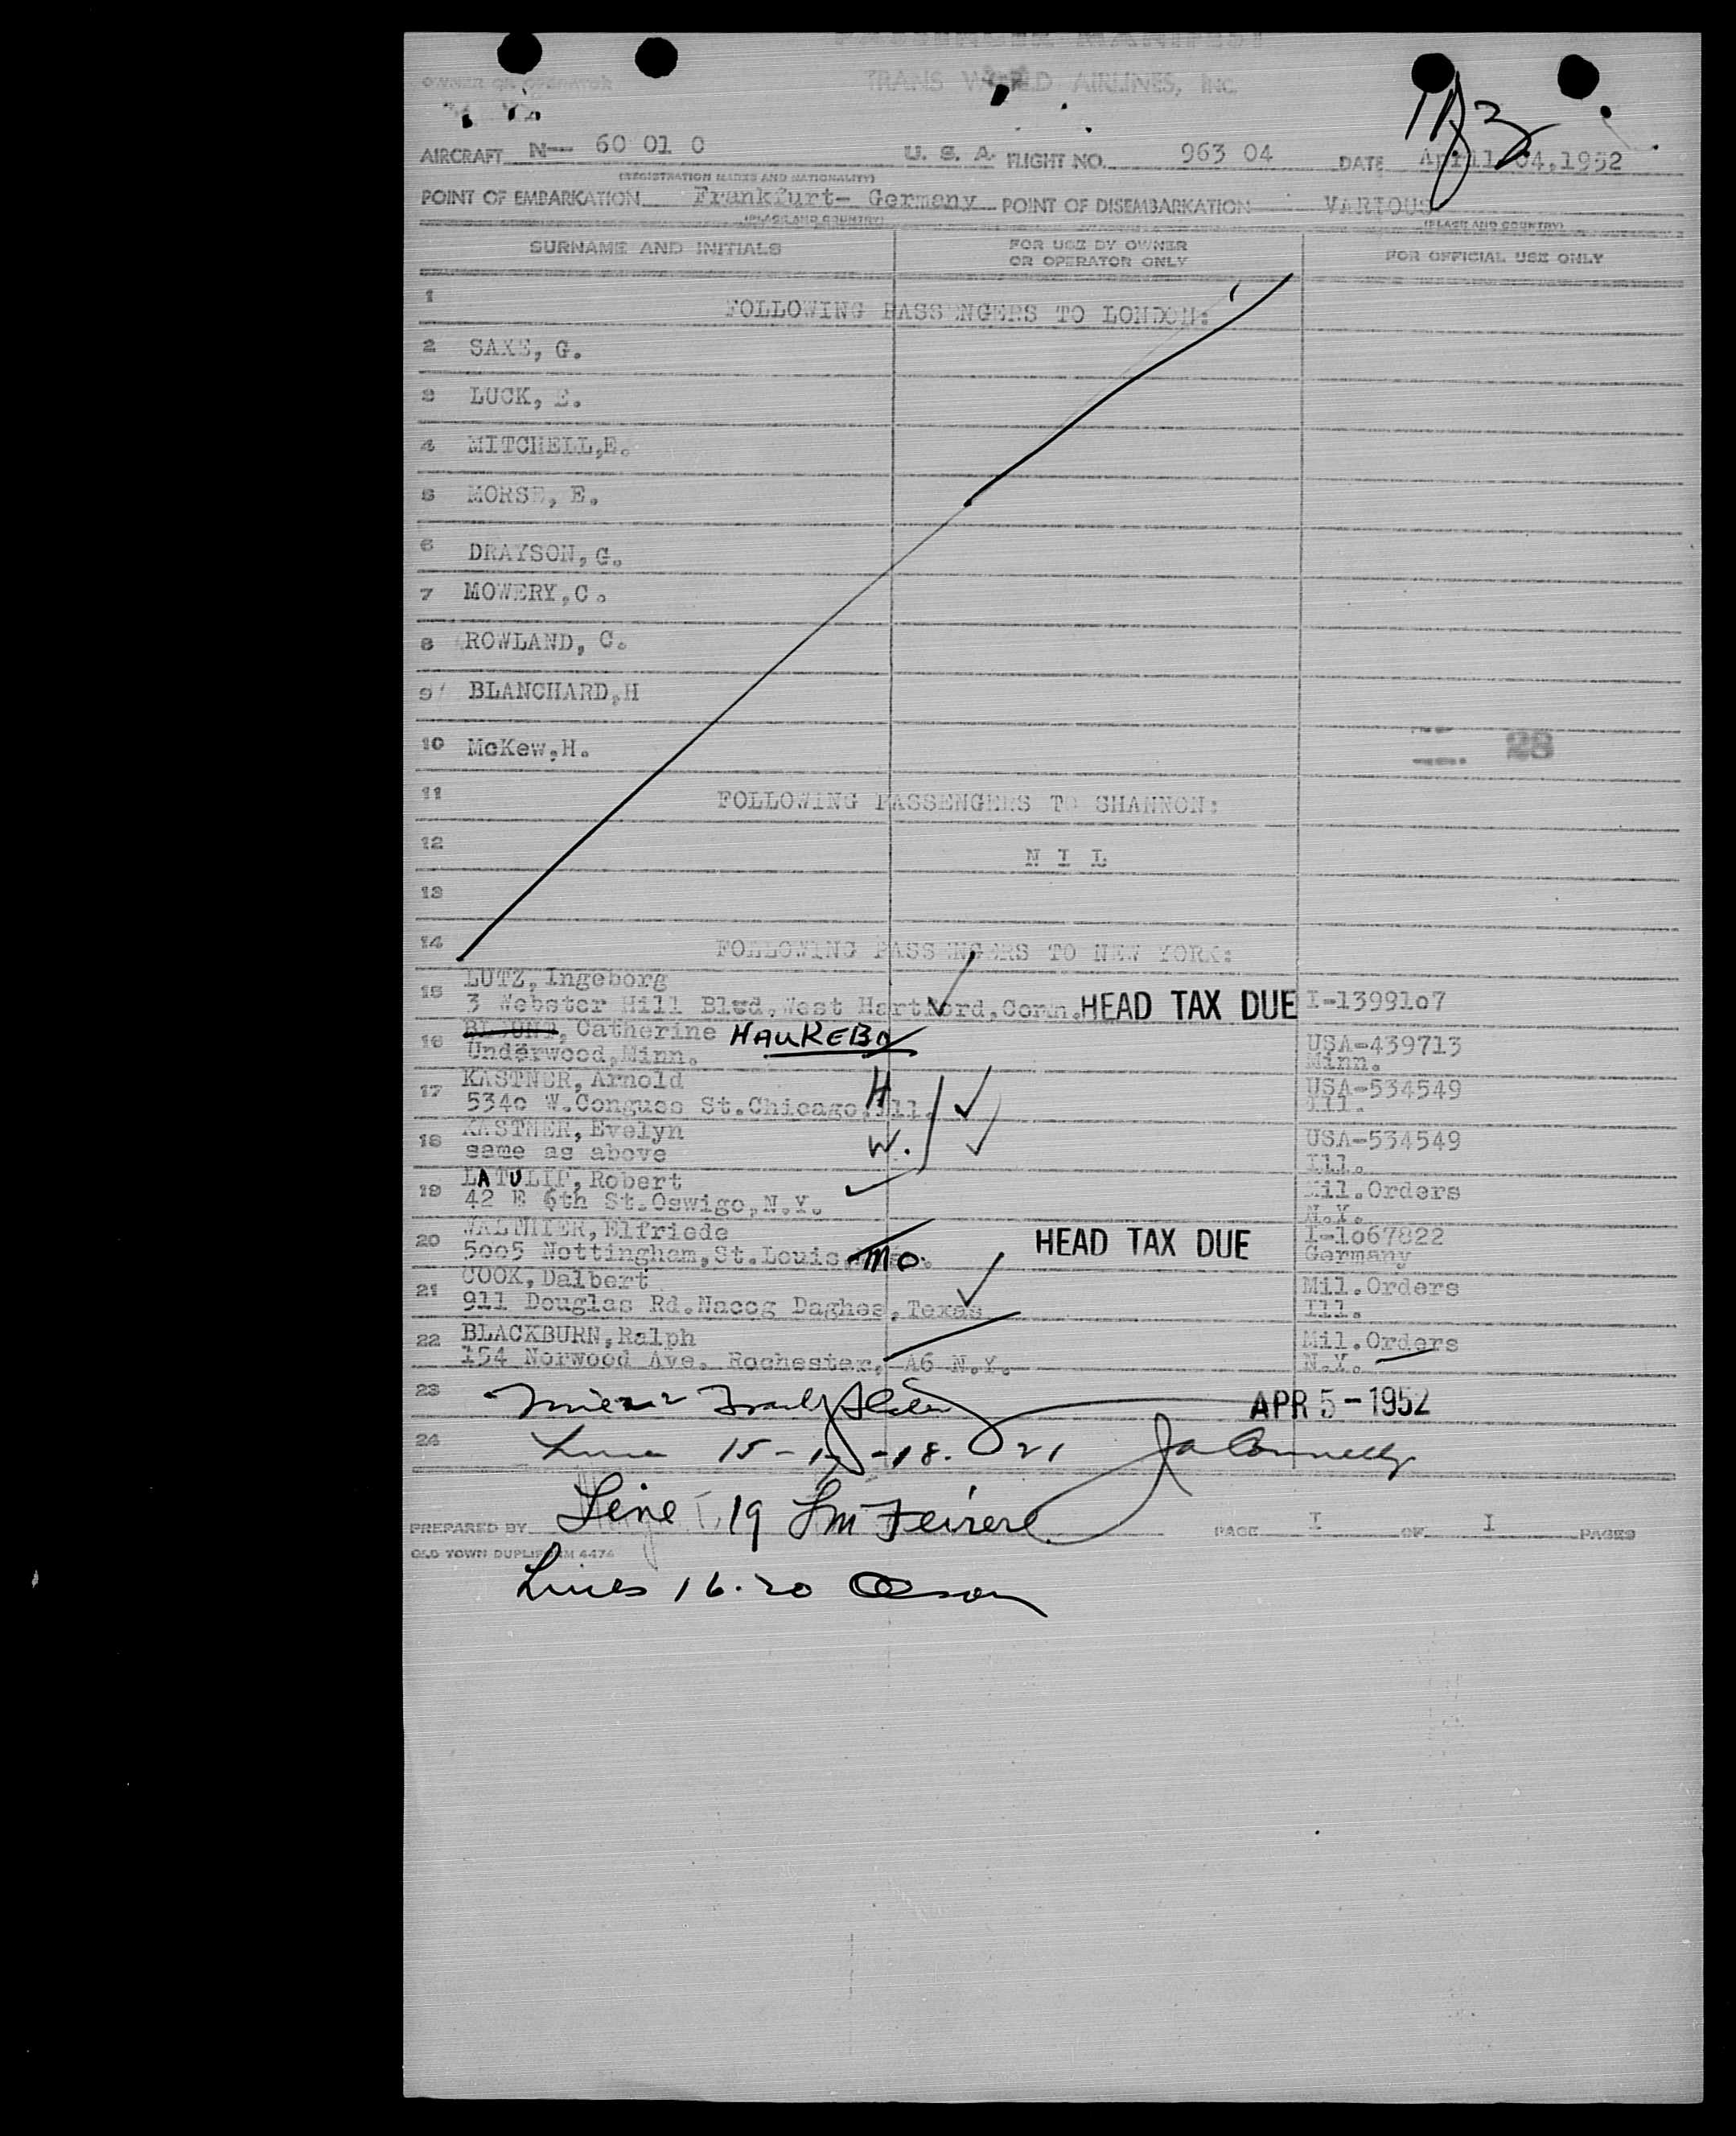 PASSENGER MANIFEST
OWNER OR OPERATOR TRANS WORLD AIRLINES, INC.
AIRCRAFT N- 60 01 C U. S. A. FLIGHT NO. 963 04 DATE April 04,1952
(REGISTRATION MARKS AND NATIONALITY)
POINT OF EMBARKATION Frankfurt- Germany POINT OF DISEMBARKATION VARIOUS
(PLACE AND COUNTRY) (PLACE AND COUNTRY)
SURNAME AND INITIALS FOR USE BY OWNER OR OPERATOR ONLY FOR OFFICIAL USE ONLY
1 FOLLOWING PASSENGERS TO LONDON:
2 SAXE, G.
3 LUCK, E.
4 MITCHELL,E.
5 MORSE, E.
6 DRAYSON, G.
7 MOWERY,C.
8 ROWLAND, C.
9 BLANCHARD,H
10 McKew,H. 28
11 FOLLOWING PASSENGERS TO SHANNON:
12 N I L
13
14 FOLLOWING PASSENGERS TO NEW YORK:
15 LUTZ, Ingeborg
3 Webster Hill Blvd,West Hartford,Conn. HEAD TAX DUE I-1399107
16 BLOUNT, Catherine HAUKEBO USA-439713
Underwood,Minn. Minn.
17 KASTNER, Arnold H USA-534549
5340 W.Conguss St.Chicago,Ill. Ill.
18 KASTNER, Evelyn W. USA-534549
same as above Ill.
19 LATULIP, Robert Mil.Orders
42 E 6th St.Oswigo,N.Y. N.Y.
20 WALTHIER, Elfriede HEAD TAX DUE I-1067822
5005 Nottingham,St.Louis, Mo. Germany
21 COOK, Dalbert Mil.Orders
911 Douglas Rd.Nacog Daghes,Texas Ill.
22 BLACKBURN,Ralph Mil.Orders
154 Norwood Ave. Rochester, A6 N.Y. N.Y.
23 APR 5-1952
24 Line 15- -18. 21 Ja Connelly
PREPARED BY Line 19 PAGE I OF I PAGES
OLD TOWN DUPLIFORM 4474
Lines 16.20 Olson